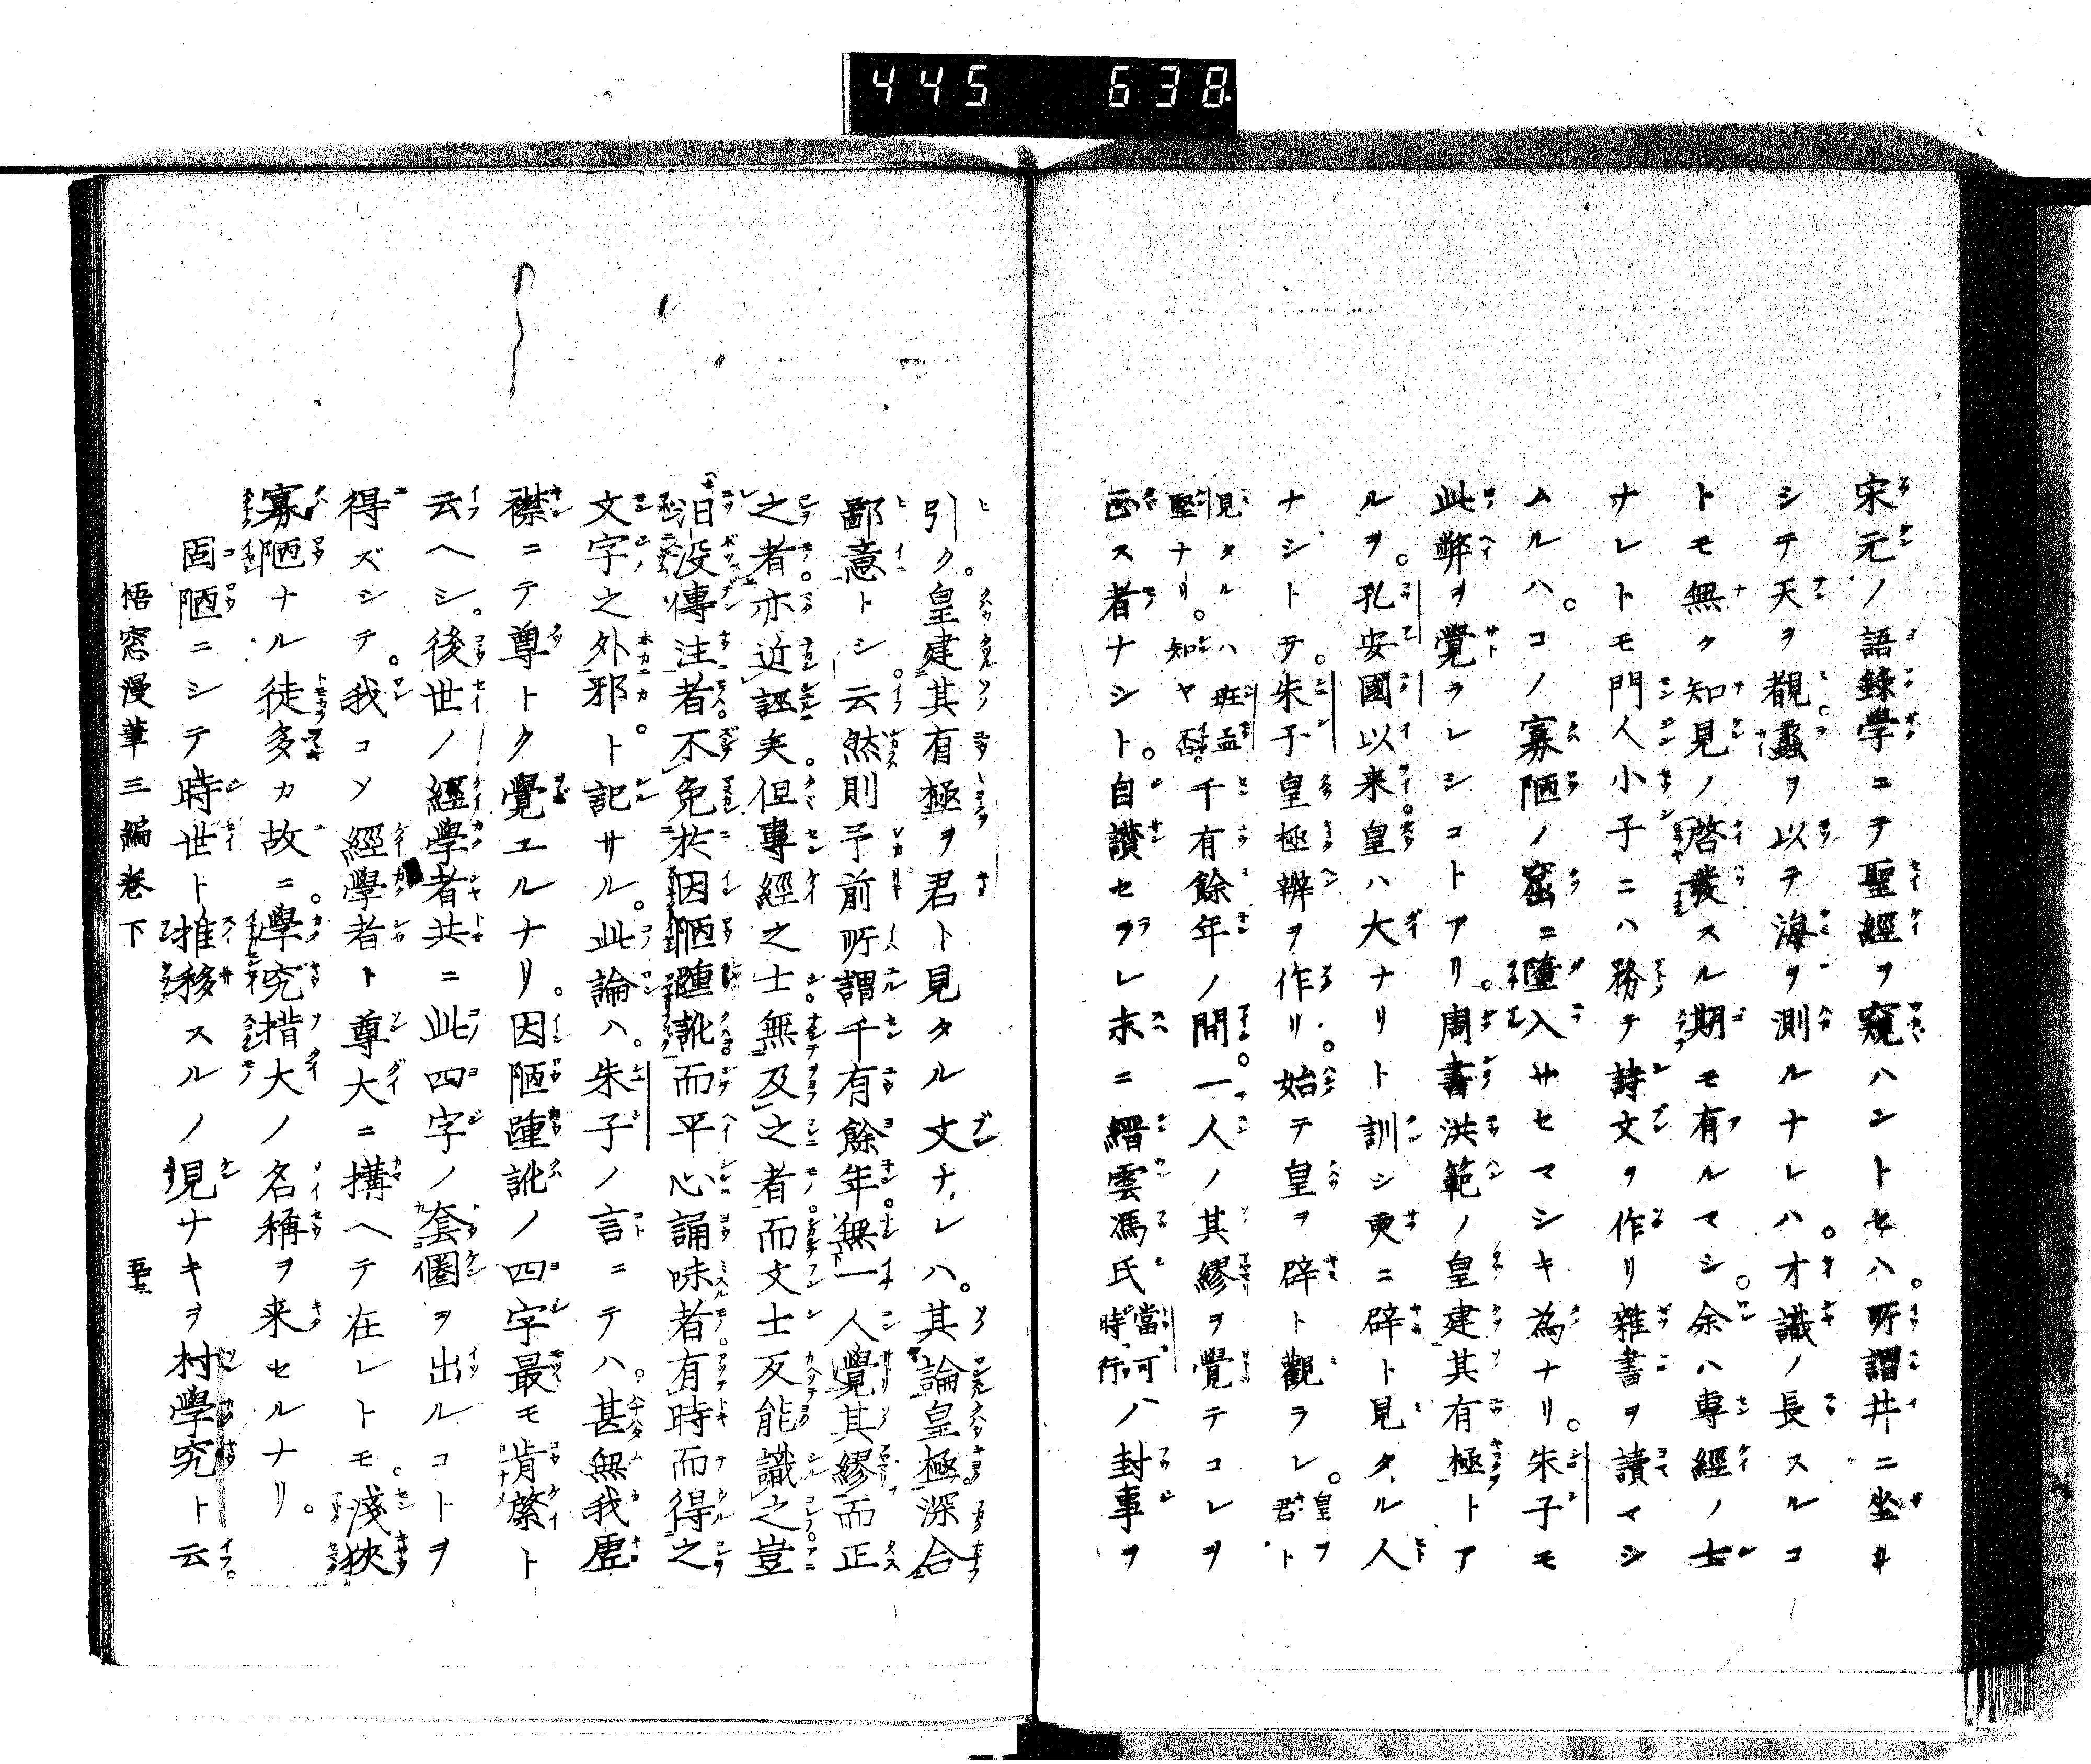 445 638
宋元ノ語錄學ニテ聖經ヲ窺ハントセハ。所謂井ニ坐
シテ天ヲ覩。蠡ヲ以テ海ヲ測ルナレハ。才識ノ長スルコ
トモ無ク知見ノ啓發スル期モ有ルマシ。余ハ專經ノ士
ナレトモ門人小子ニハ務テ詩文ヲ作リ雜書ヲ讀マシ
ムルハ。コノ寡陋ノ窟ニ墮入サセマシキ為ナリ。朱子モ
此弊ヲ覺ラレシコトアリ。周書洪範ノ皇建其有極トア
ルヲ。孔安國以来。皇ハ大ナリト訓シ更ニ辟ト見タル人
ナシトテ。朱子皇極辨ヲ作リ。始テ皇ヲ辟ト觀ラレ。皇ヲ君ト
見タルハ班孟堅ナリ。知ヤ否。千有餘年ノ間。一人ノ其繆ヲ覺テコレヲ
正ス者ナシト。自讃セラレ末ニ縉雲馮氏當可時行ノ封事ヲ
引ク。皇建其有極ヲ君ト見タル文ナレハ。其論皇極。深合
鄙意トシ。云然則予前所謂千有餘年。無一人覺其繆而正
之者。亦近誣矣。但專經之士。無及之者。而文士反能識之。豈
汨沒傳注者。不免於因陋踵訛。而平心誦味者。有時而得之
文字之外邪。ト記サル。此論ハ。朱子ノ言ニテハ。甚無我虛
襟ニテ尊トク覺エルナリ。因陋踵訛ノ四字最モ肯綮ト
云ヘシ。後世ノ經學者共ニ此四字ノ套圈ヲ出ルコトヲ
得ズシテ。我コソ經學者ト尊大ニ搆ヘテ在レトモ。淺狹
寡陋ナル徒多カ故ニ。學究措大ノ名稱ヲ来セルナリ。
固陋ニシテ時世ト推移スルノ現ナキヲ村學究ト云。
梧窓漫筆三編卷下